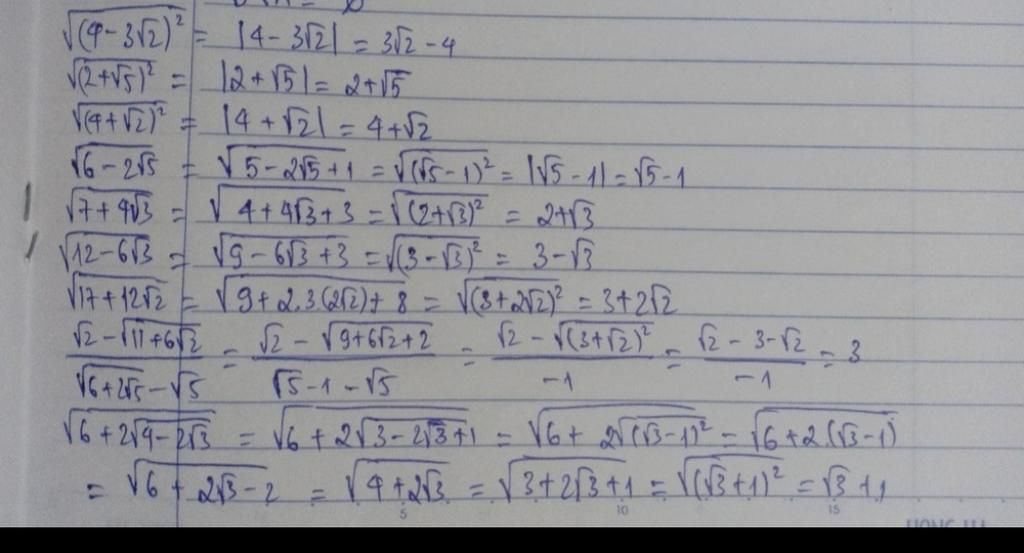 √(4-3√2)² = |4-3√2| = 3√2-4
√(2+√5)² = |2+√5| = 2+√5
√(4+√2)² = |4+√2| = 4+√2
√6-2√5 = √5-2√5+1 = √(√5-1)² = |√5-1| = √5-1
√7+4√3 = √4+4√3+3 = √(2+√3)² = 2+√3
√12-6√3 = √9-6√3+3 = √(3-√3)² = 3-√3
√17+12√2 = √9+2.3(2√2)+8 = √(3+2√2)² = 3+2√2
(√2-√11+6√2)/(√6+2√5-√5) = (√2-√9+6√2+2)/(√5-1-√5) = (√2-√(3+√2)²)/(-1) = (√2-3-√2)/(-1) = 3
√6+2√4-2√3 = √6+2√3-2√3+1 = √6+2√(√3-1)² = √6+2.(√3-1)
= √6+2√3-2 = √4+2√3 = √3+2√3+1 = √(√3+1)² = √3+1
5 10 15